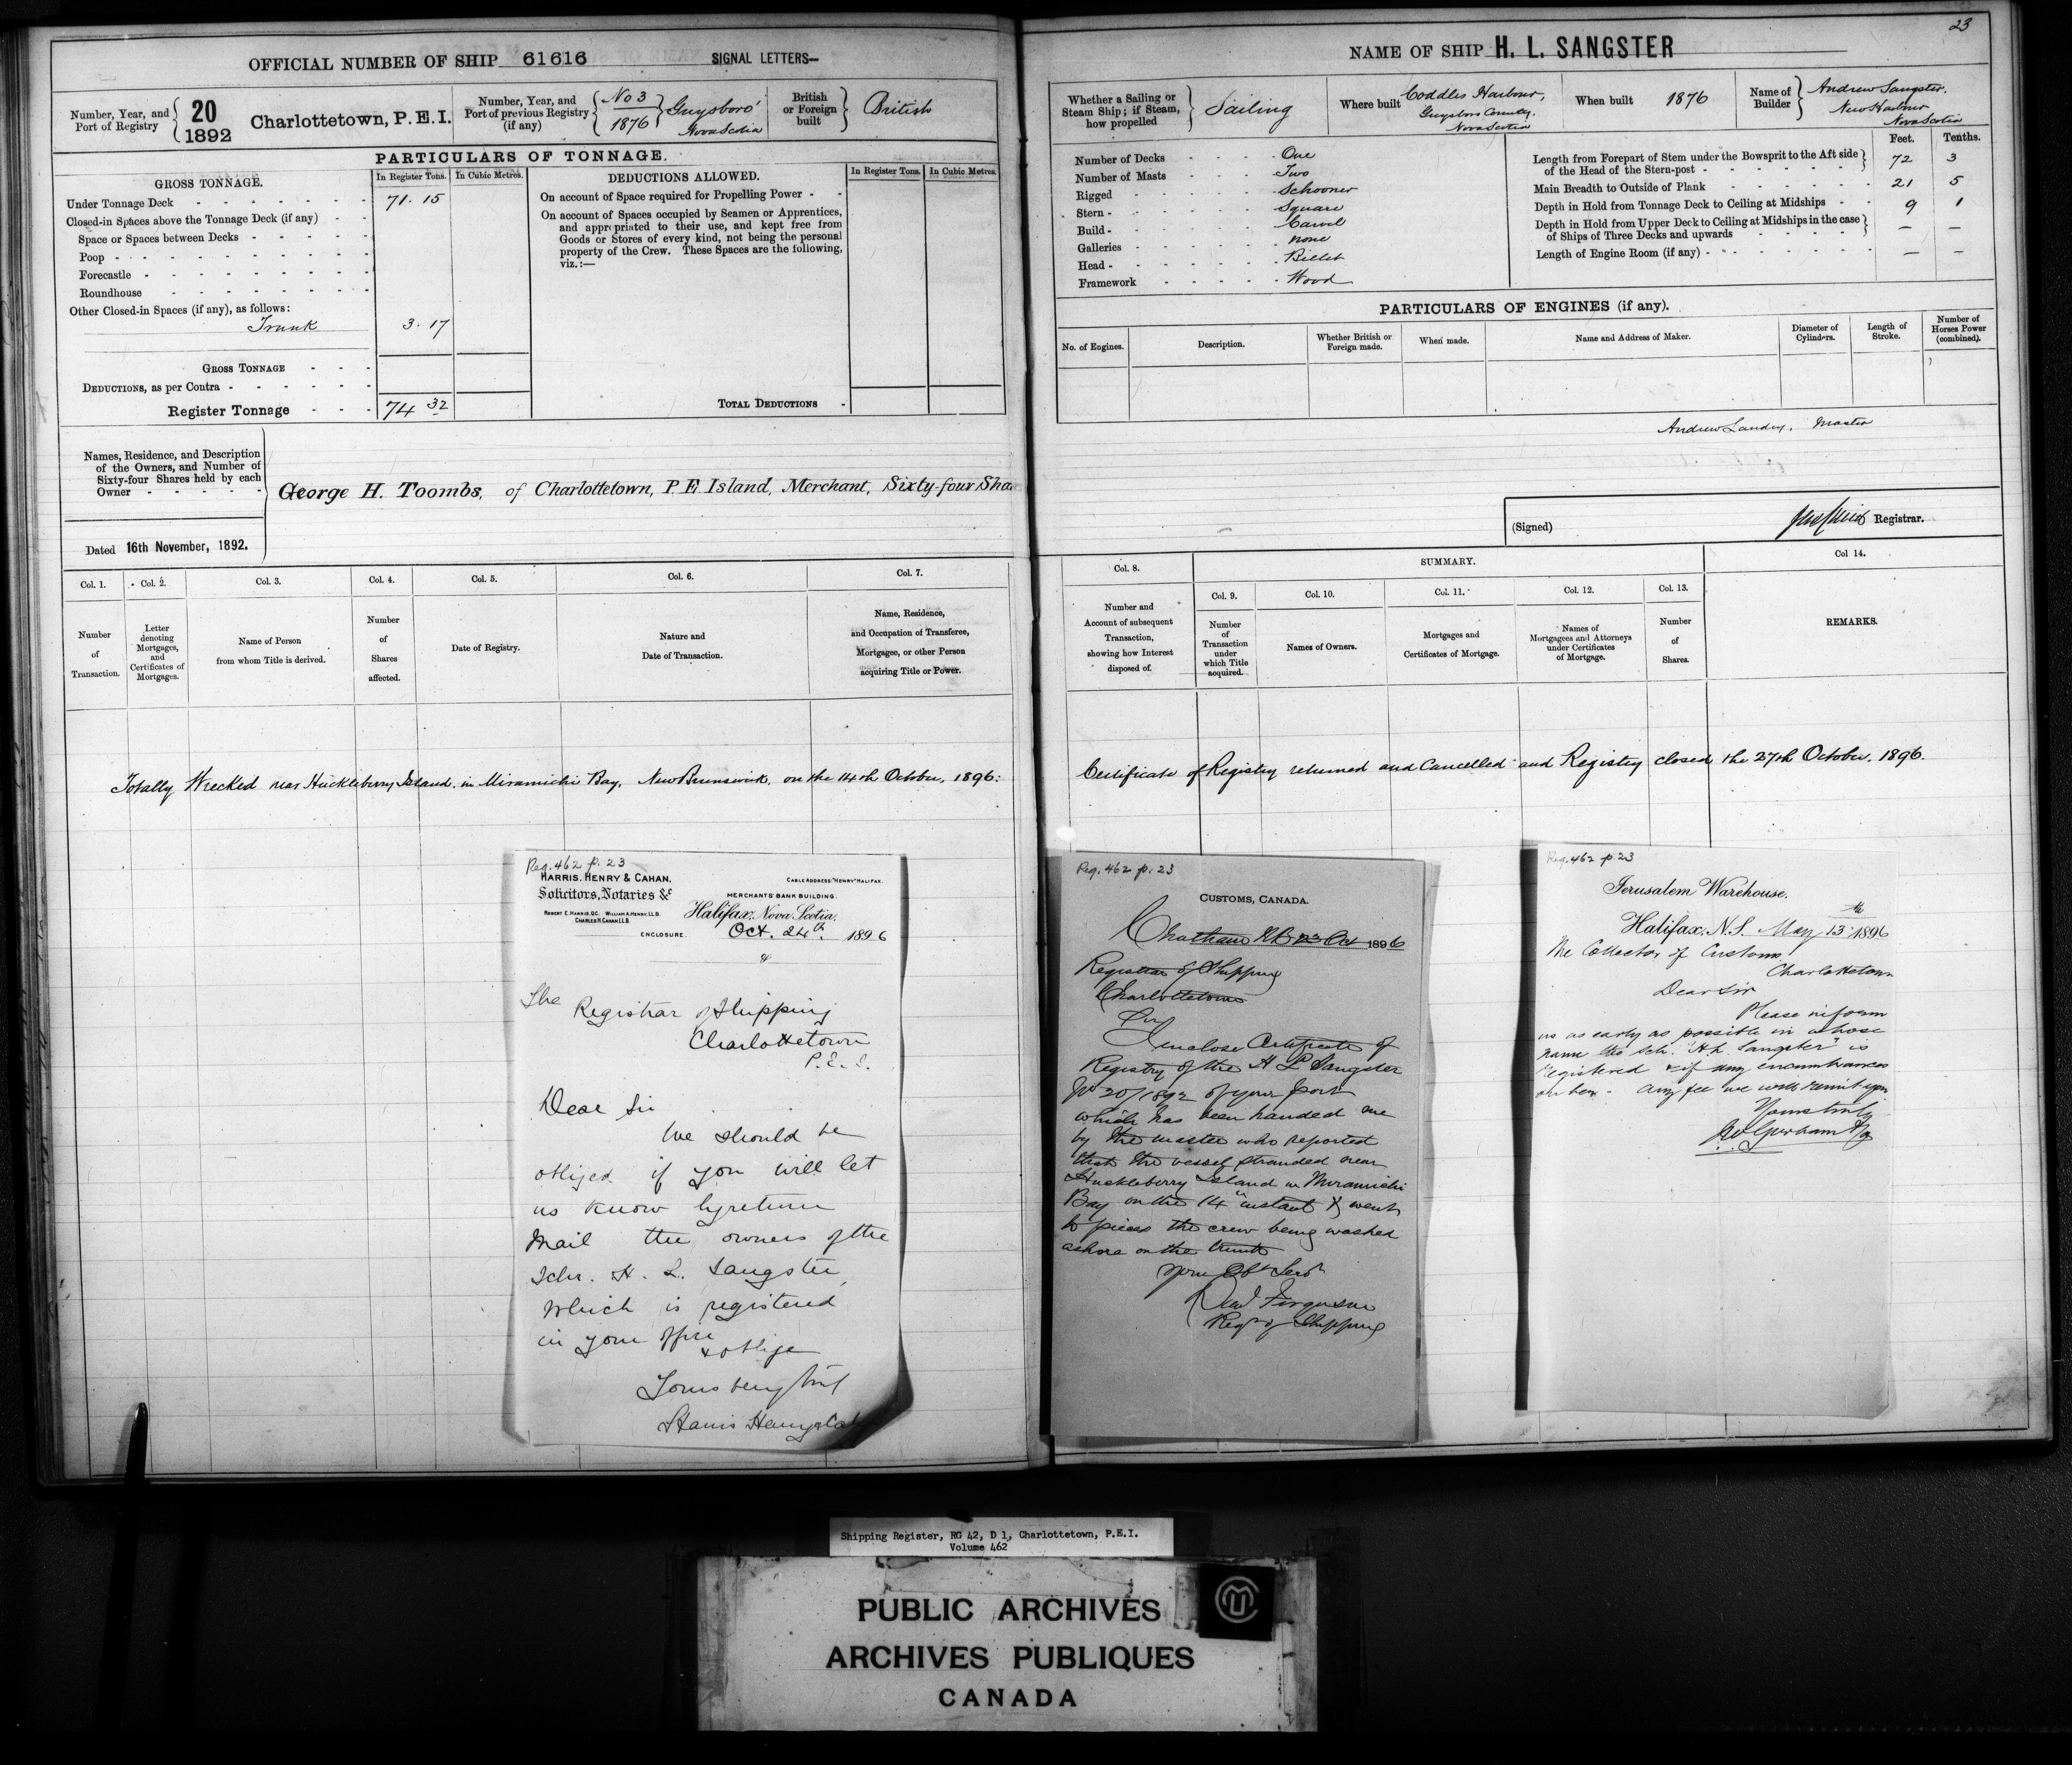 23
OFFICIAL NUMBER OF SHIP 61616 SIGNAL LETTERS—
Number, Year, and Port of Registry { 20 1892 Charlottetown, P.E.I.
Number, Year, and Port of previous Registry (if any) { No 3 1876 } Guysboro' Nova Scotia
British or Foreign built } British
PARTICULARS OF TONNAGE.
GROSS TONNAGE. In Register Tons. In Cubic Metres.
Under Tonnage Deck 71. 15
Closed-in Spaces above the Tonnage Deck (if any)
Space or Spaces between Decks
Poop
Forecastle
Roundhouse
Other Closed-in Spaces (if any), as follows:
Trunk 3. 17
GROSS TONNAGE
DEDUCTIONS, as per Contra
Register Tonnage 74 32
DEDUCTIONS ALLOWED. In Register Tons. In Cubic Metres.
On account of Space required for Propelling Power
On account of Spaces occupied by Seamen or Apprentices,
and appropriated to their use, and kept free from
Goods or Stores of every kind, not being the personal
property of the Crew. These Spaces are the following,
viz.:—
TOTAL DEDUCTIONS
Names, Residence, and Description
of the Owners, and Number of
Sixty-four Shares held by each
Owner
George H. Toombs, of Charlottetown, P E Island, Merchant, Sixty-four Sha
Dated 16th November, 1892.
Col. 1. Col. 2. Col. 3. Col. 4. Col. 5. Col. 6. Col. 7.
Number of Transaction.
Letter denoting Mortgages, and Certificates of Mortgages.
Name of Person from whom Title is derived.
Number of Shares affected.
Date of Registry.
Nature and Date of Transaction.
Name, Residence, and Occupation of Transferee, Mortgagee, or other Person acquiring Title or Power.
Totally Wrecked near Huckleberry Island, in Miramichi Bay, New Brunswick, on the 14th October, 1896:
NAME OF SHIP H. L. SANGSTER
Whether a Sailing or Steam Ship; if Steam, how propelled } Sailing
Where built Coddles Harbour, Guysboro County, Nova Scotia
When built 1876
Name of Builder } Andrew Sangster, New Harbour Nova Scotia
Number of Decks One
Number of Masts Two
Rigged Schooner
Stern Square
Build Carvel
Galleries none
Head Billet
Framework Wood
Feet. Tenths.
Length from Forepart of Stem under the Bowsprit to the Aft side
of the Head of the Stern-post } 72 3
Main Breadth to Outside of Plank 21 5
Depth in Hold from Tonnage Deck to Ceiling at Midships 9 1
Depth in Hold from Upper Deck to Ceiling at Midships in the case
of Ships of Three Decks and upwards } — —
Length of Engine Room (if any) — —
PARTICULARS OF ENGINES (if any).
No. of Engines. Description. Whether British or Foreign made. When made. Name and Address of Maker. Diameter of Cylinders. Length of Stroke. Number of Horses Power (combined).
Andrew Landry, Master
(Signed) Registrar.
Col. 8. SUMMARY. Col 14.
Col. 9. Col. 10. Col. 11. Col. 12. Col. 13.
Number and Account of subsequent Transaction, showing how Interest disposed of.
Number of Transaction under which Title acquired.
Names of Owners.
Mortgages and Certificates of Mortgage.
Names of Mortgagees and Attorneys under Certificates of Mortgage.
Number of Shares.
REMARKS.
Certificate of Registry returned and Cancelled and Registry closed the 27th October, 1896.
Reg. 462 p. 23
HARRIS, HENRY & CAHAN, CABLE ADDRESS: "HENRY" HALIFAX.
Solicitors, Notaries &c MERCHANTS' BANK BUILDING.
ROBERT E. HARRIS, QC. WILLIAM A. HENRY, LL.B.
CHARLES H. CAHAN, LL.B.
Halifax, Nova Scotia,
ENCLOSURE. Oct. 24th 1896
The Registrar of Shipping
Charlottetown
P.E.I.
Dear Sir
We should be
obliged if you will let
us know by return
mail the owners of the
Schr. H. L. Sangster,
which is registered
in your office
& oblige
Yours very truly
Harris Henry & Cahan
Reg. 462 p. 23
CUSTOMS, CANADA.
Chatham NB 23 Oct 1896
Registrar of Shipping
Charlottetown
Sir
I enclose Certificate of
Registry of the H L Sangster
No 20/1892 of your Port
which has been handed me
by the master who reported
that the vessel stranded near
Huckleberry Island in Miramichi
Bay on the 14" instant & went
to pieces the crew being washed
ashore on the trunk
Your Obt Servt
Ferguson
Regr of Shipping
Reg. 462 p 23
Jerusalem Warehouse.
Halifax, N.S. May 13th 1896
The Collector of Customs
Charlottetown
Dear Sir
Please inform
us as early as possible in whose
name the sch. "H. L. Sangster" is
registered & if any encumbrances
on her. Any fee we will remit upon
Yours truly
Shipping Register, RG 42, D 1, Charlottetown, P.E.I.
Volume 462
PUBLIC ARCHIVES
ARCHIVES PUBLIQUES
CANADA